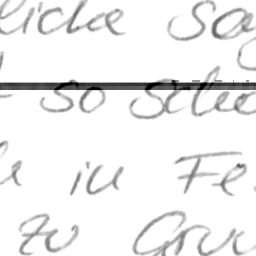 liche Sa
so scho
in Fe
zu Gru